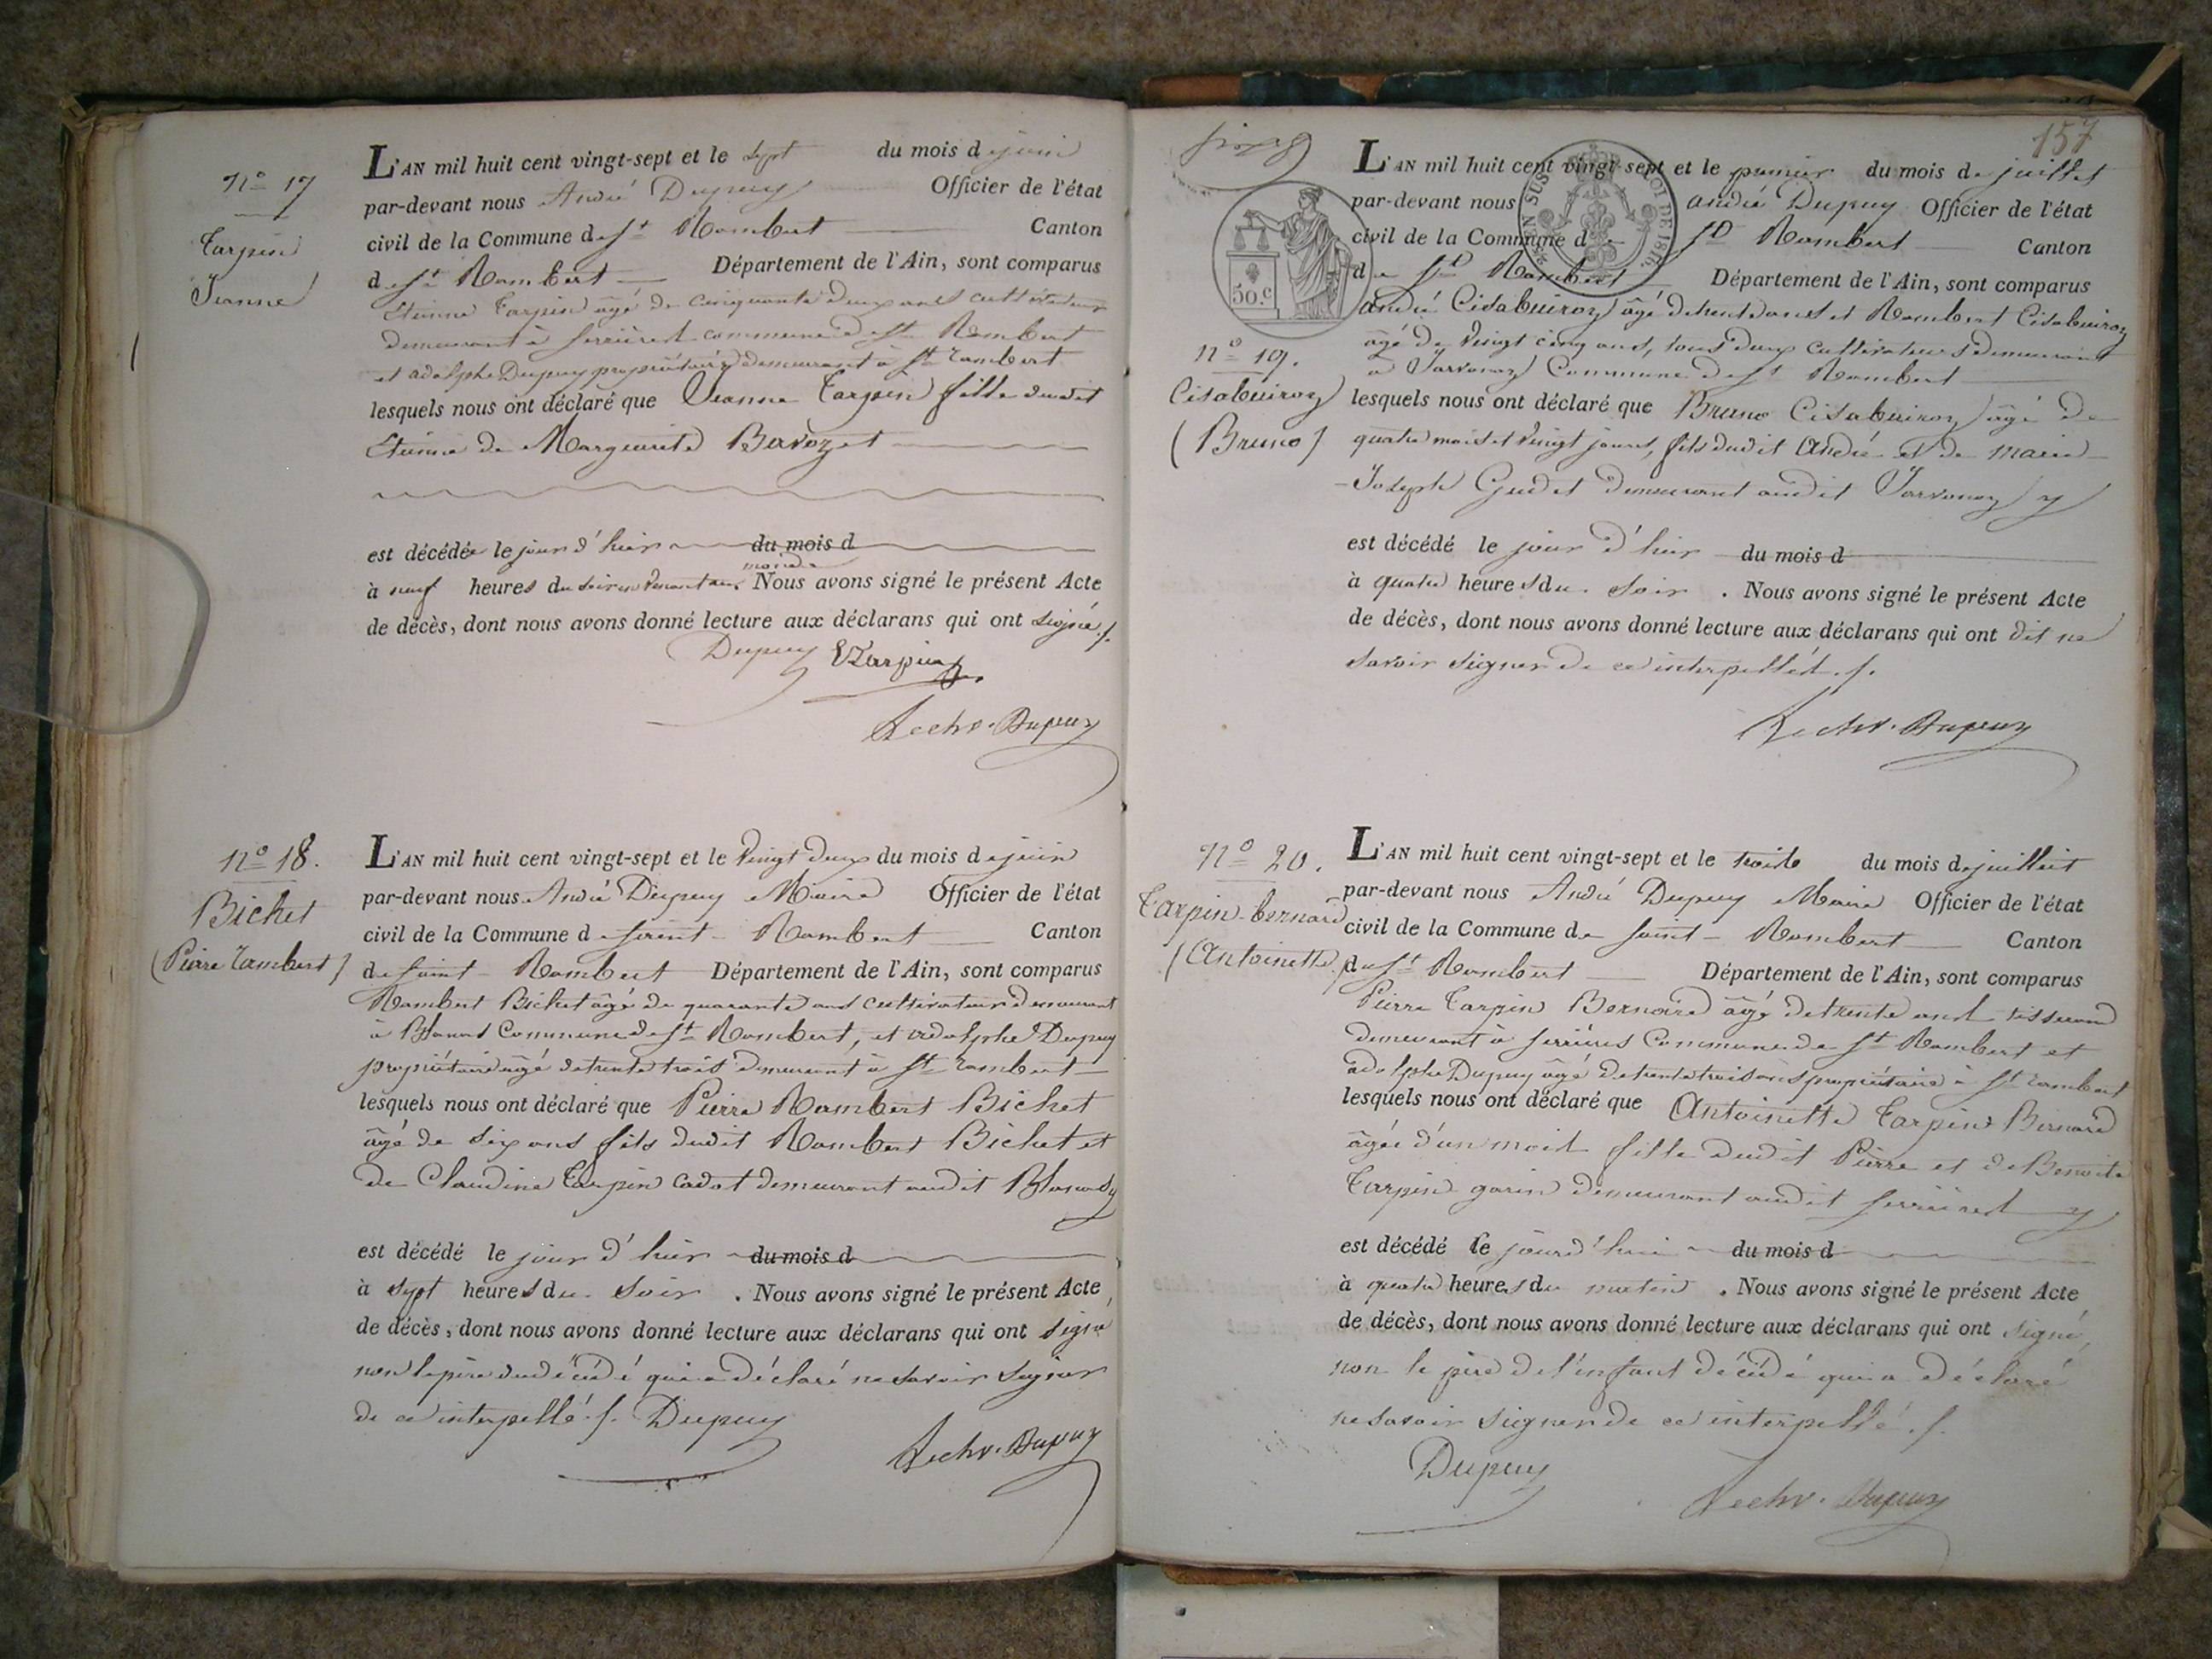 N° 17
Tarpin
Jeanne
L'AN mil huit cent vingt-sept et le sept du mois de juin
par-devant nous André Dupuy Officier de l'état
civil de la Commune de St Rambert Canton
de St Rambert Département de l'Ain, sont comparus
Etienne Tarpin âgé de cinquante deux ans cultivateur
demeurant à Serrières commune de St Rambert
et adolphe Dupuy propriétaire demeurant à St rambert
lesquels nous ont déclaré que Jeanne Tarpin fille dudit
Etienne de Marguerite Bavozet
est décédée le jour d'hier du mois d
à neuf heures du soir Nous avons signé le présent Acte
de décès, dont nous avons donné lecture aux déclarans qui ont signé ./.
Dupuy ETarpin
Dupuy
N° 18.
Bichet
(Pierre rambert)
L'AN mil huit cent vingt-sept et le vingt deux du mois de juin
par-devant nous André Dupuy Maire Officier de l'état
civil de la Commune de Saint-Rambert Canton
de Saint-Rambert Département de l'Ain, sont comparus
Rambert Bichet âgé de quarante ans cultivateur demeurant
à Blanas Commune de St Rambert, et adolphe Dupuy
propriétaire âgé de trente trois demeurant à St rambert
lesquels nous ont déclaré que Pierre Rambert Bichet
âgé de six ans fils dudit Rambert Bichet et
de Claudine Tarpin cadot demeurant audit Blanas
est décédé le jour d'hier du mois d
à sept heures du soir . Nous avons signé le présent Acte
de décès, dont nous avons donné lecture aux déclarans qui ont signé
non le père du décédé qui a déclaré ne savoir signer
de ce interpellé ./. Dupuy
Dupuy
157
50.c
L'AN mil huit cent vingt-sept et le premier du mois de juillet
par-devant nous andré Dupuy Officier de l'état
civil de la Commune de St Rambert Canton
de St Rambert Département de l'Ain, sont comparus
N° 19.
Citabuiroz
(Bruno)
andré Citabuiroz âgé de trente ans et Rambert Citabuiroz
âgé de vingt cinq ans, tous deux cultivateurs demeurant
à Javornoz Commune de St Rambert
lesquels nous ont déclaré que Bruno Citabuiroz âgé de
quatre mois et vingt jours, fils dudit André et de marie
Joseph Gudet demeurant audit Javornoz
est décédé le jour d'hier du mois d
à quatre heures du soir . Nous avons signé le présent Acte
de décès, dont nous avons donné lecture aux déclarans qui ont dit ne
savoir signer de ce interpellés ./.
Dupuy
N° 20.
Tarpin-bernard
(Antoinette)
L'AN mil huit cent vingt-sept et le treize du mois de juillet
par-devant nous André Dupuy Maire Officier de l'état
civil de la Commune de Saint-Rambert Canton
de St Rambert Département de l'Ain, sont comparus
Pierre Tarpin Bernard âgé de trente ans tisserand
demeurant à Serrières Commune de St Rambert et
adolphe Dupuy âgé de trente trois ans propriétaire à St rambert
lesquels nous ont déclaré que Antoinette Tarpin Bernard
âgée d'un mois fille dudit Pierre et de Benoite
Tarpin garin demeurant audit Serrières
est décédé le jour d'hui du mois d
à quatre heures du matin . Nous avons signé le présent Acte
de décès, dont nous avons donné lecture aux déclarans qui ont signé,
non le père de l'enfant décédé qui a déclaré
ne savoir signer de ce interpellé ./.
Dupuy
Dupuy